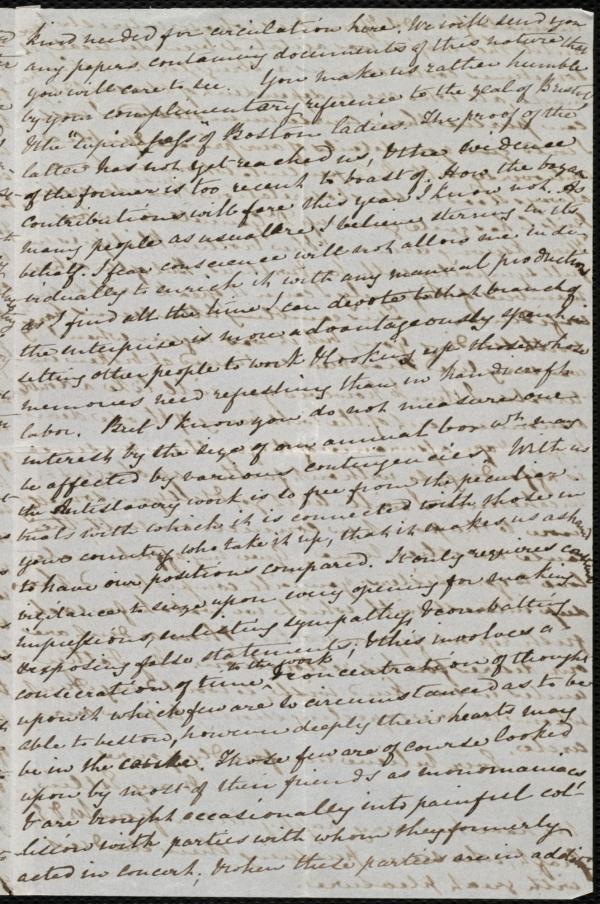 kind needed for circulation here. We will send you
any papers containing documents of this nature that
you will care to see. You make us rather humble
by your complimentary reference to the zeal of Bristol
& the "supineness" of Boston ladies. The proof of the
latter has not yet reached us, & the evidence
of the former is too recent to boast of. How the bazaar
contributions will fare this year I know not. As
many people as usual are I believe stirring in its
behalf. I fear conscience will not allow me indi-
vidually to enrich it with any manual productions
as I find all the time I can devote to that branch of
the enterprise is more advantageously spent in
setting other people to work & looking up those whose
memories need refreshing than in handicraft
labor. But I know you do not measure our
interest by the size of our annual box wh. may
be affected by various contingencies. With us
the Antislavery work is so free from the peculiar
trials with which it is connected with those in
your country who take it up, that it makes us ashamed
to have our positions compared. It only requires constant
vigilance to seize upon every opening for making
impressions, enlisting sympathy, & combatting
& exposing false statements; & this involves a
consecration of time to the work & concentration of thought
upon it which few are so circumstanced as to be
able to bestow, however deeply their hearts may
be in the cause. Those few are of course looked
upon by most of their friends as monomaniacs
& are brought occasionally into painful col-
lision with parties with whom they formerly
acted in concert; & when these parties are in addition